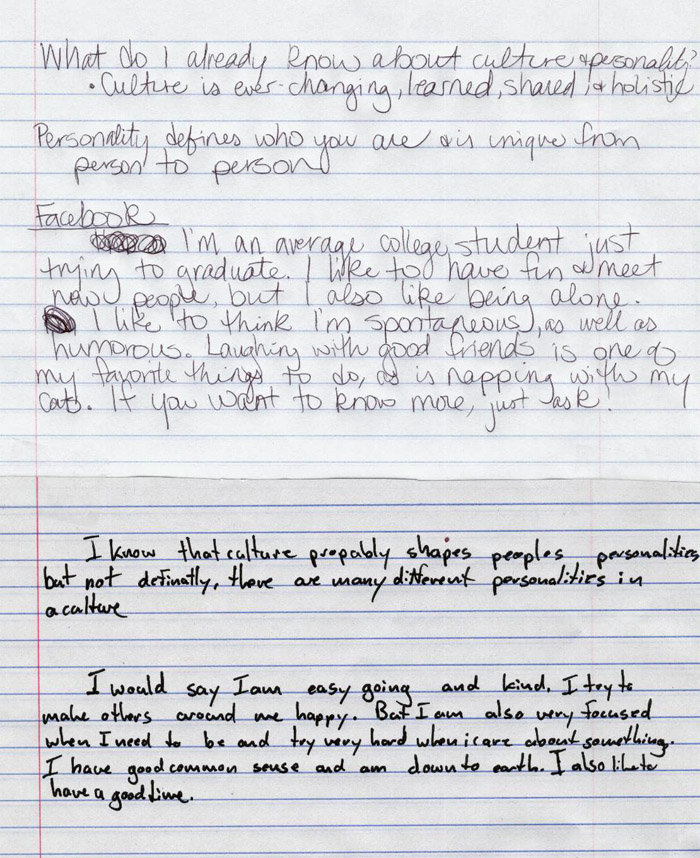 What do I already know about culture & personality?
• Culture is ever-changing, learned, shared, & holistic
Personality defines who you are & is unique from
person to person
Facebook
I'm an average college student just
trying to graduate. I like to have fun & meet
new people, but I also like being alone.
I like to think I'm spontaneous, as well as
humorous. Laughing with good friends is one of
my favorite things to do, as is napping with my
cats. If you want to know more, just ask!
I know that culture propably shapes peoples personalities
but not definatly, there are many different personalities in
a culture
I would say I am easy going and kind. I try to
make others around me happy. But I am also very focused
when I need to be and try very hard when i care about something.
I have good common sense and am down to earth. I also like to
have a good time.